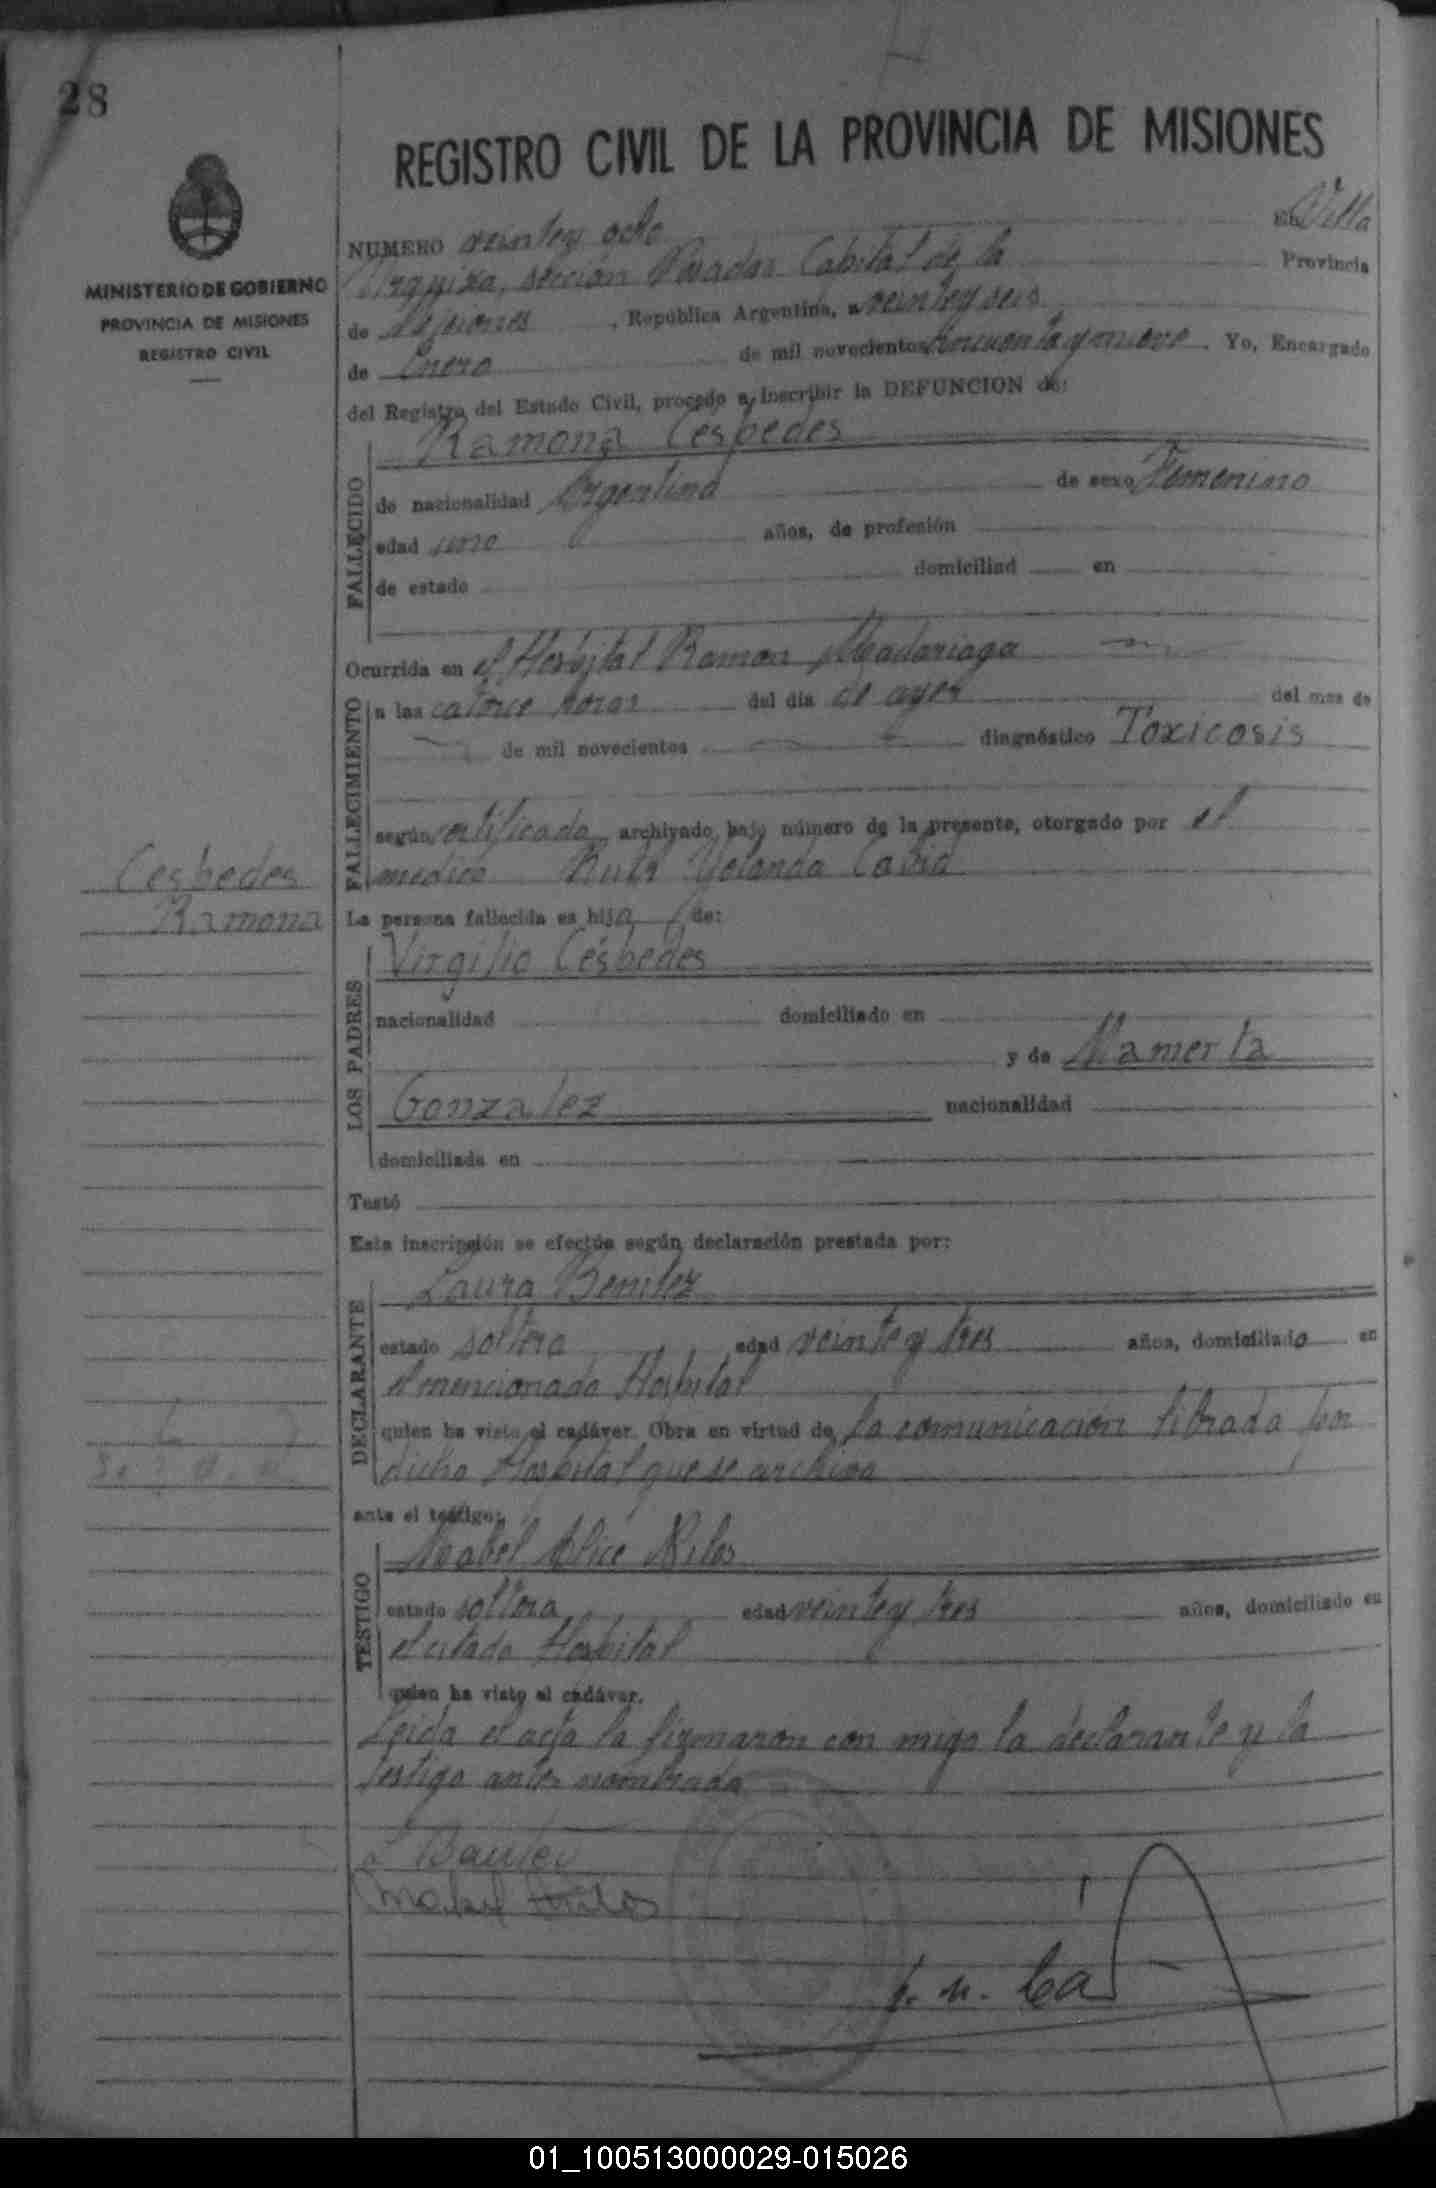 28
REGISTRO CIVIL DE LA PROVINCIA DE MISIONES
MINISTERIO DE GOBIERNO
PROVINCIA DE MISIONES
REGISTRO CIVIL
NUMERO veintey ocho En Villa
Urquiza, sección Posadas Capital de la Provincia
de Misiones, República Argentina, a veintey seis
de Enero de mil novecientos cincuenta y nueve. Yo, Encargado
del Registro del Estado Civil, procedo a inscribir la DEFUNCION de:
Ramona Cesbedes
FALLECIDO
de nacionalidad Argentina de sexo Femenino
edad uno años, de profesión
de estado domiciliad en
Ocurrida en el Hospital Ramon Madariaga
FALLECIMIENTO
a las catorce horas del día de ayer del mes de
de mil novecientos diagnóstico Toxicosis
según certificado archivado bajo número de la presente, otorgado por el
medico Ruth Yolanda
Cesbedes
Ramona
La persona fallecida es hija de:
LOS PADRES
Virgilio Cesbedes
nacionalidad domiciliado en
y de Mamerta
Gonzalez nacionalidad
domiciliada en
Testó
Esta inscripción se efectúa según declaración prestada por:
DECLARANTE
Laura Benitez
estado soltera edad veinte y tres años, domiciliado en
el mencionado Hospital
quien ha visto el cadáver. Obra en virtud de la comunicación librada por
dicho Hospital que se archiva
ante el testigo:
TESTIGO
Mabel Alice
estado soltera edad veintey tres años, domiciliado en
el citado Hospital
quien ha visto el cadáver.
Leida el acta la firmaron con migo la declarante y la
testigo antes nombrada
01_100513000029-015026